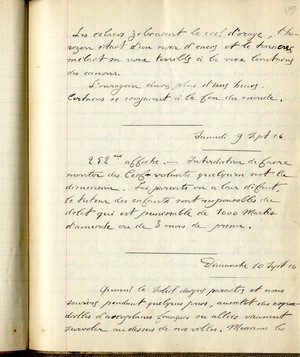 Les éclairs zébraient le ciel d'orage, l'ho-
rizon était d'un noir d'encre et le tonnerre
mêlait sa voix terrible à la voix lointaine
des canons.
L'ouragan dura plus d'une heure.
Certains se croyaient à la fin du monde.
Samedi 9 Sept 16
252me affiche. — Interdiction de faire
monter des Cerfs-volants quelqu'en soit la
dimension. Les parents ou à leur défaut,
le tuteur des enfants sont responsables du
délit qui est punissable de 1000 Marks
d'amende ou de 3 mois de prison.
Dimanche 10 Sept 16
Quand le Soleil daigne paraître et nous
sourire pendant quelques jours, aussitôt des esqua-
drilles d'aéroplanes français ou alliés viennent
survoler au dessus de nos villes. les